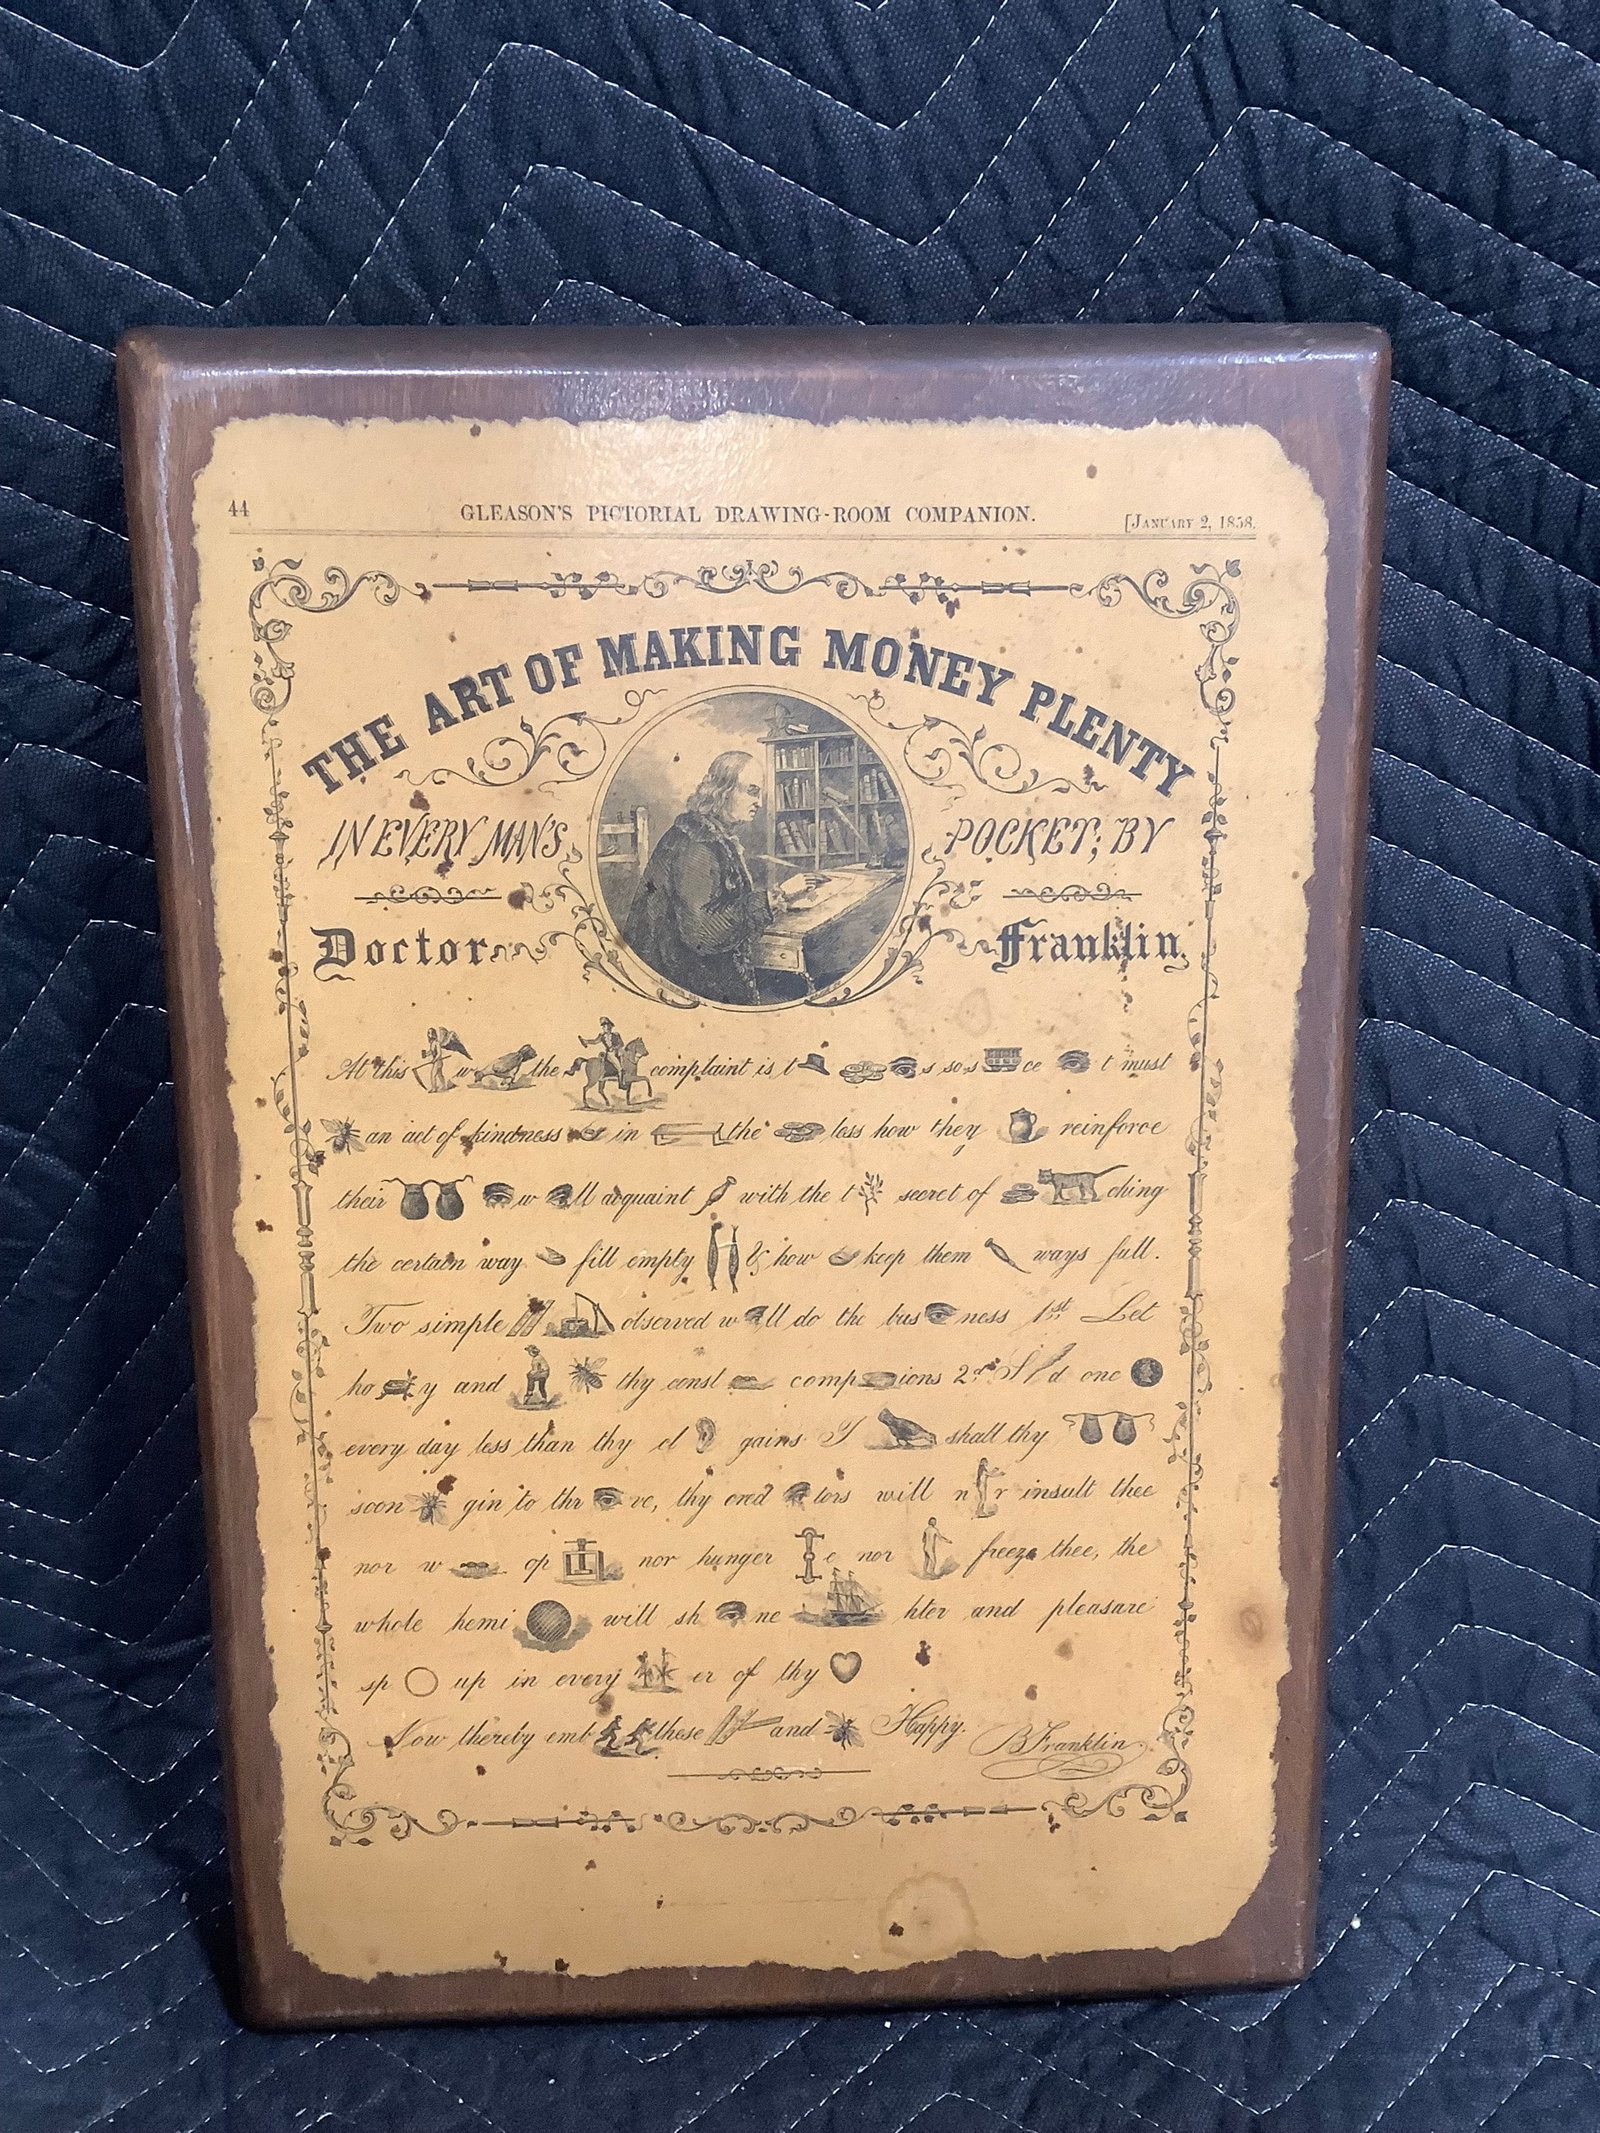 44 GLEASON'S PICTORIAL DRAWING-ROOM COMPANION. [JANUARY 2, 1858.
THE ART OF MAKING MONEY PLENTY
IN EVERY MAN'S POCKET; BY
Doctor Franklin.
At this w the complaint is t s so s ce t must
an act of kindness in the less how they reinforce
their w ll acquaint with the t secret of ching
the certain way fill empty & how keep them ways full.
Two simple observed w ll do the bus ness 1st Let
ho y and thy const comp ions 2d S d one
every day less than thy cl gains T shall thy
soon gin to thr ve, thy cred tors will n r insult thee
nor w op nor hunger e nor freeze thee, the
whole hemi will sh ne hter and pleasure
sp up in every er of thy
Now thereby emb these and Happy. BFranklin